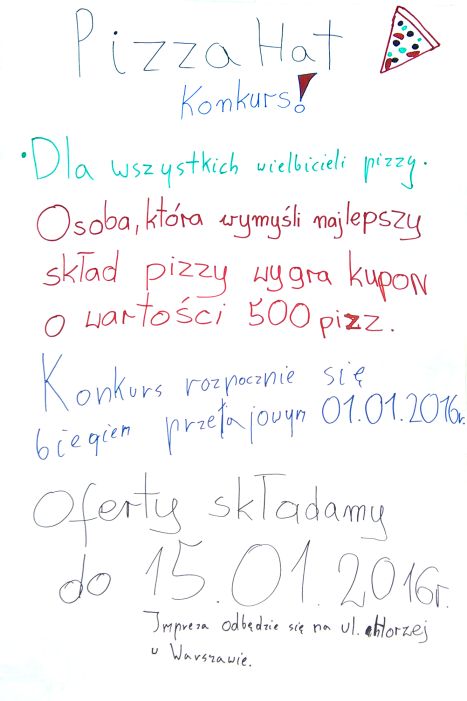 Pizza Hat
Konkurs!
• Dla wszystkich wielbicieli pizzy.
Osoba, która wymyśli najlepszy
skład pizzy wygra kupon
o wartości 500 pizz.
Konkurs rozpocznie się
biegiem przełajowym 01.01.2016r.
Oferty składamy
do 15.01.2016r.
Impreza odbędzie się na ul.
w Warszawie.